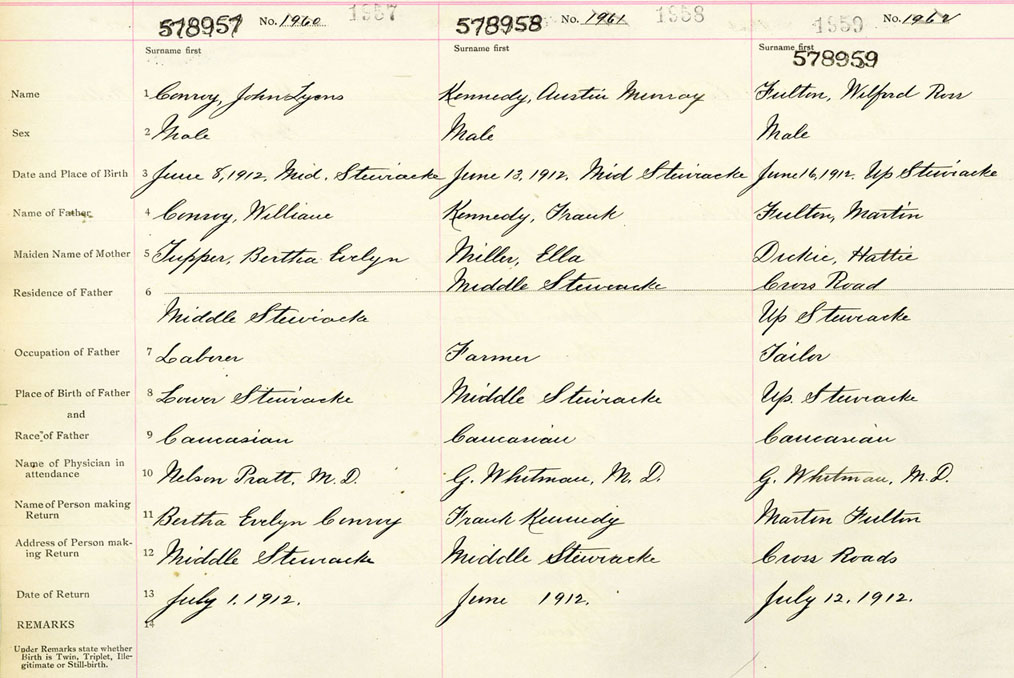 578957 No. 1960 1957 578958 No. 1961 1958 1959 No. 1962
Surname first Surname first Surname first
578959
Name 1 Conroy, John Lyons Kennedy, Austin Murray Fulton, Wilford Ross
Sex 2 Male Male Male
Date and Place of Birth 3 June 8, 1912. Mid. Stewiacke June 13, 1912. Mid Stewiacke June 16, 1912. Up Stewiacke
Name of Father 4 Conroy, William Kennedy, Frank Fulton, Martin
Maiden Name of Mother 5 Tupper, Bertha Evelyn Miller, Ella Dickie, Hattie
Residence of Father 6 Middle Stewiacke Cross Road
Middle Stewiacke Up Stewiacke
Occupation of Father 7 Laborer Farmer Tailor
Place of Birth of Father 8 Lower Stewiacke Middle Stewiacke Up. Stewiacke
and
Race of Father 9 Caucasian Caucasian Caucasian
Name of Physician in
attendance 10 Nelson Pratt, M.D. G. Whitman, M.D. G. Whitman, M.D.
Name of Person making
Return 11 Bertha Evelyn Conroy Frank Kennedy Martin Fulton
Address of Person mak-
ing Return 12 Middle Stewiacke Middle Stewiacke Cross Roads
Date of Return 13 July 1. 1912. June 1912. July 12. 1912.
REMARKS 14
Under Remarks state whether
Birth is Twin, Triplet, Ille-
gitimate or Still-birth.